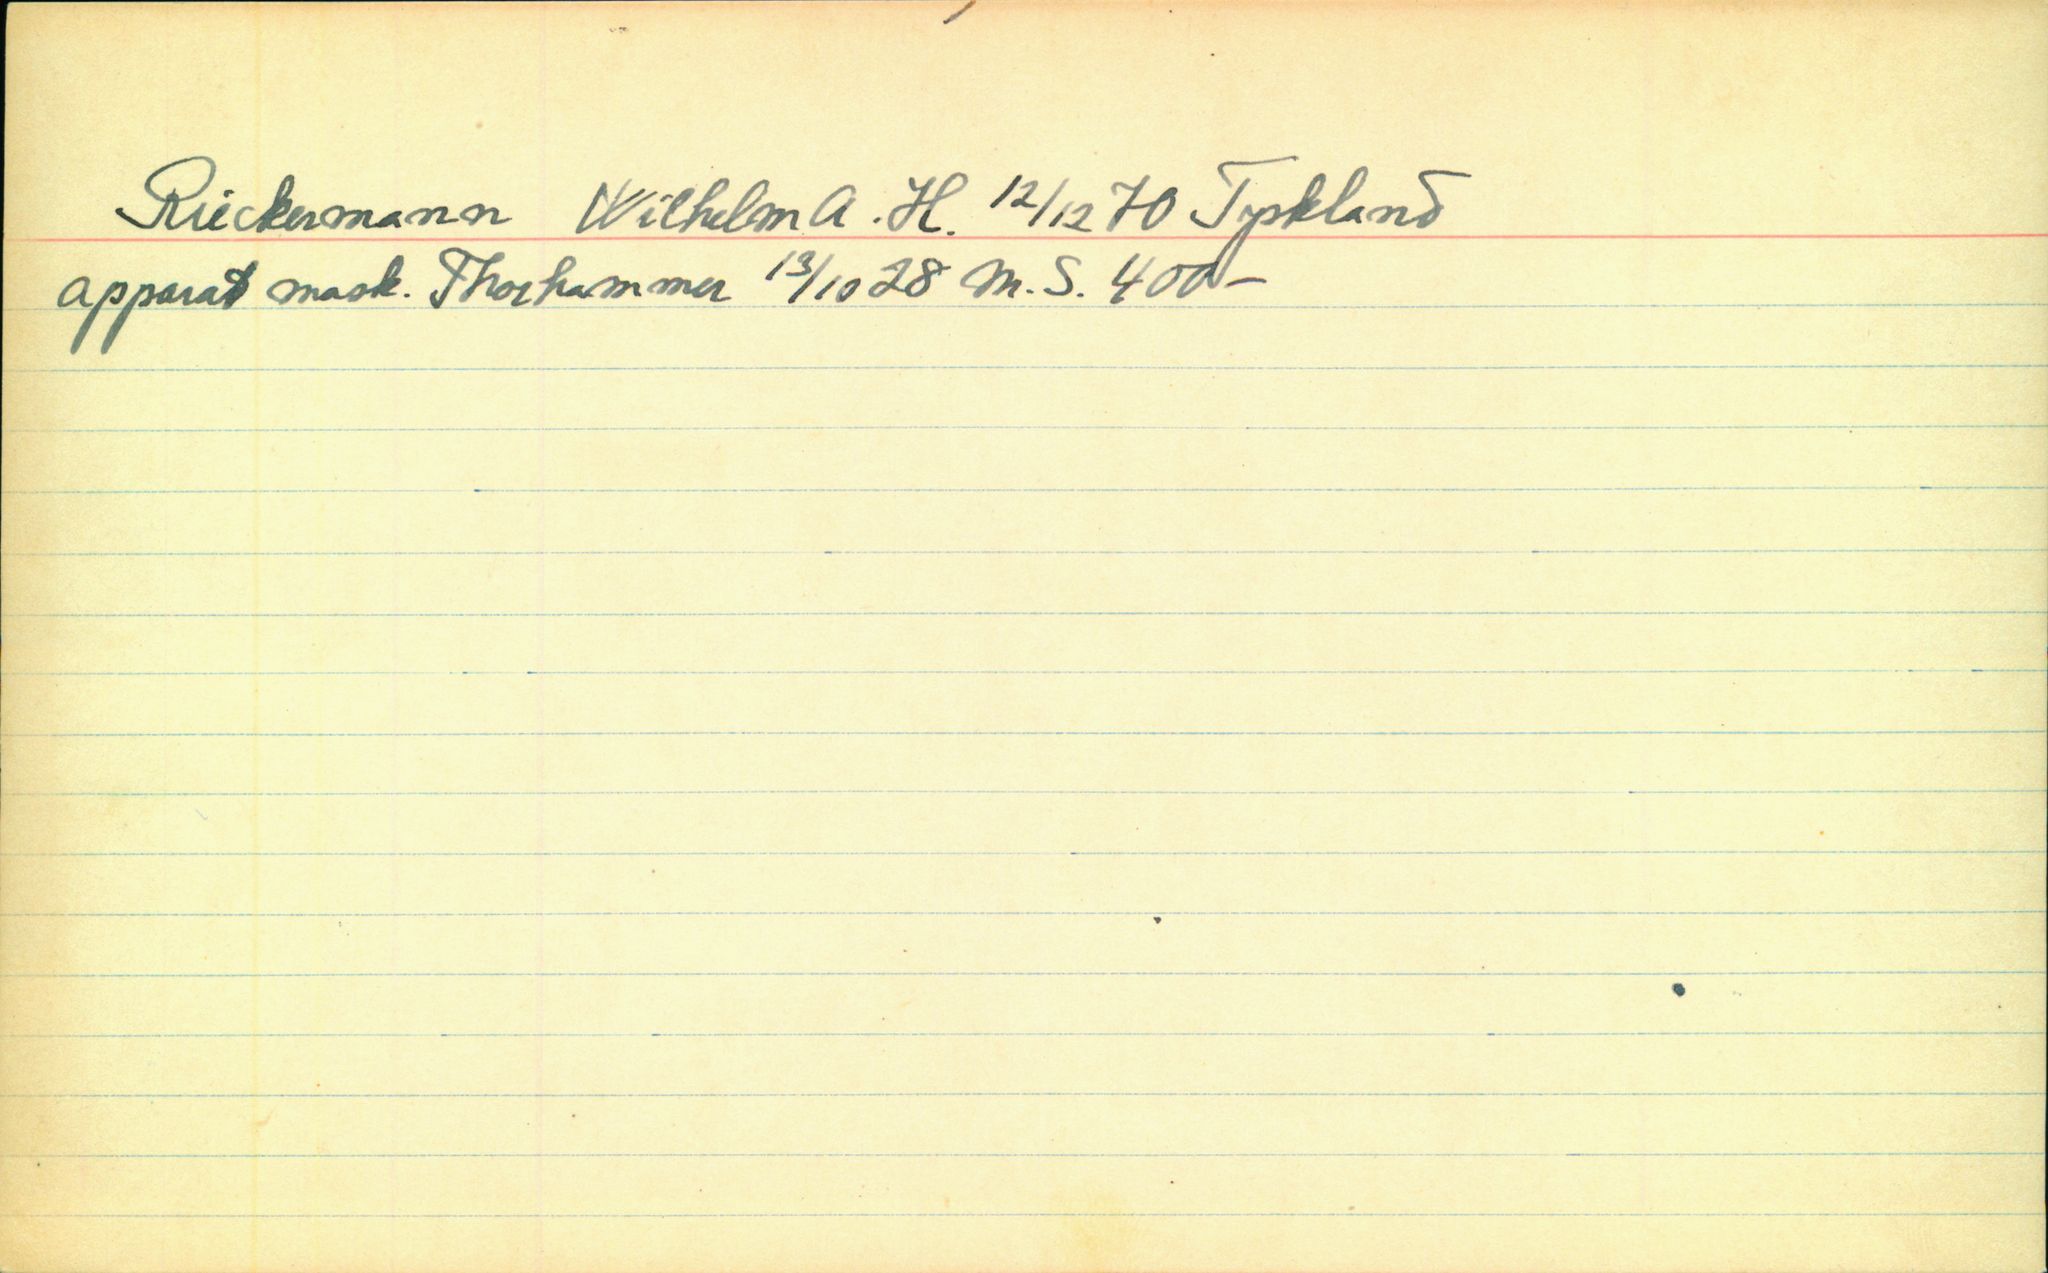 Rieckermann Wilhelm A. H. 12/12 70 Tyskland
apparat mask. Thorhammer 13/10 28 M.S. 400-